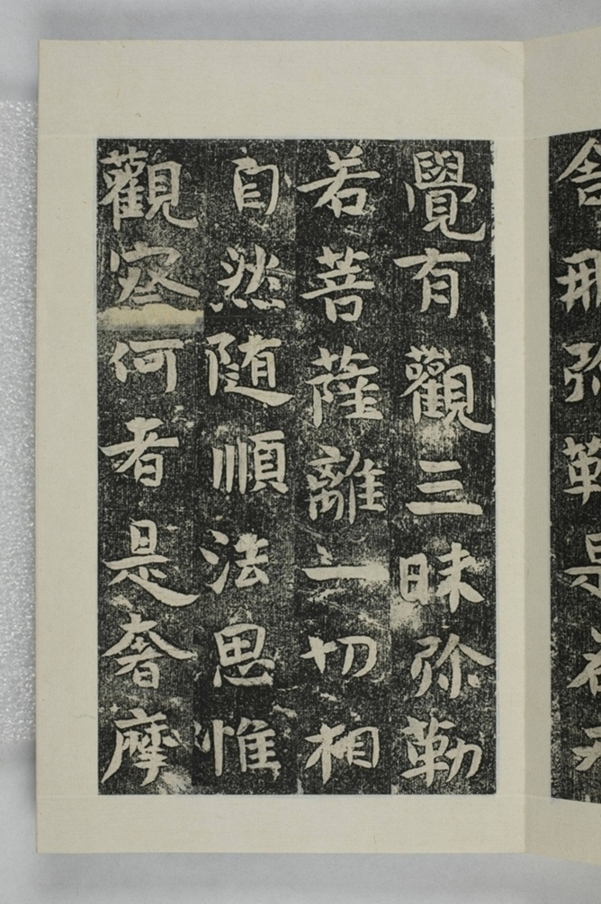 舍那弥勒是名
覺有觀三昧弥勒
若菩薩離一切相
自然随順法思惟
觀察何者是奢摩